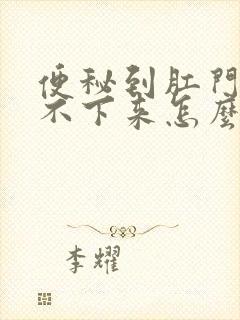 便秘到肛門
不下来怎麼
李耀